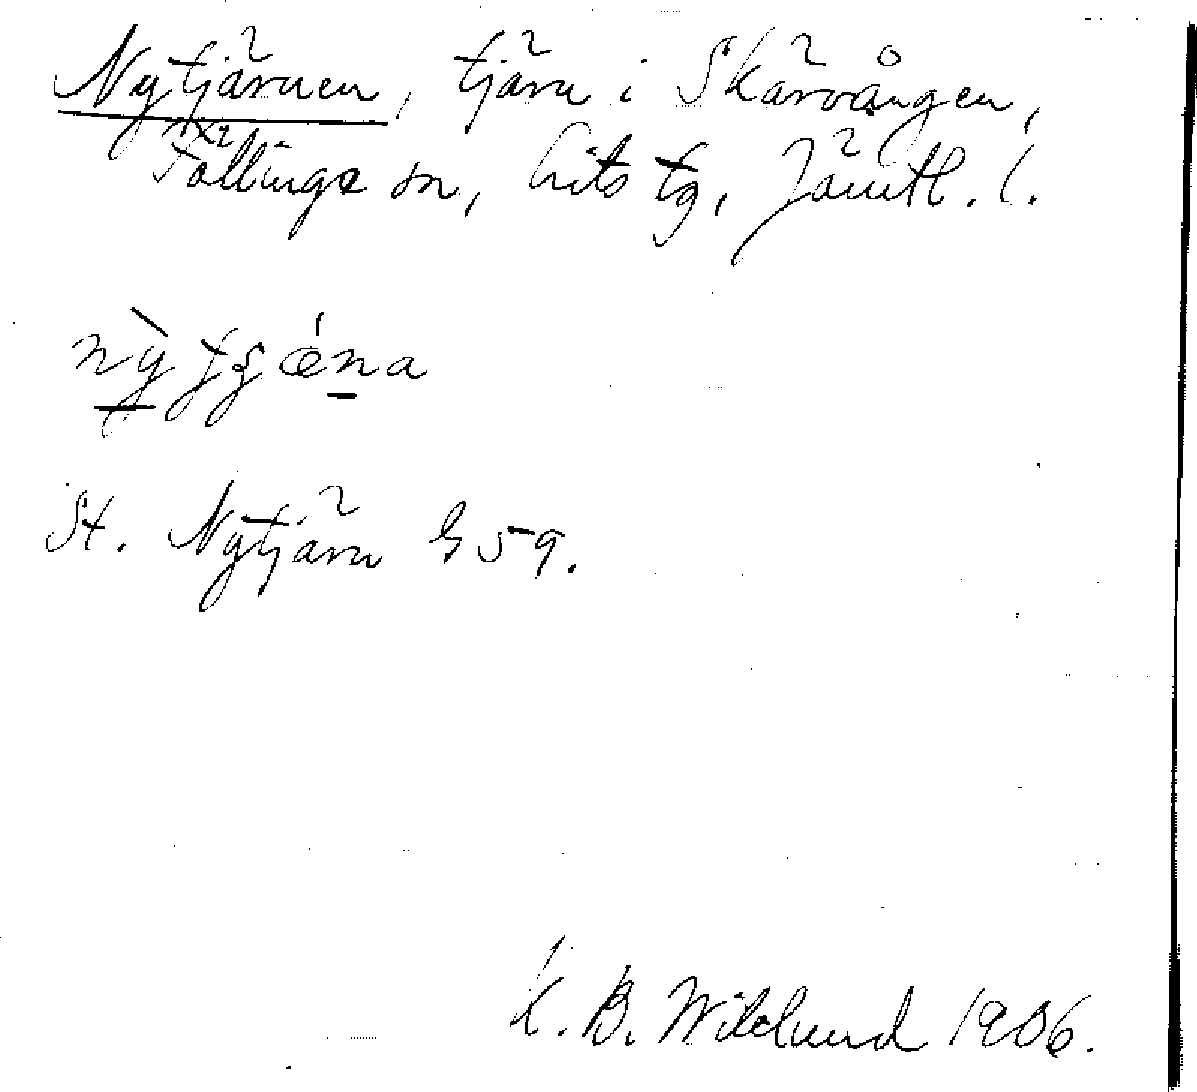 Nytjärnen, tjärn i Skärvången,
Föllinge sn, Lits tg, Jämtl. l.
St. Nytjärn G 59.
K. B. Wiklund 1906.